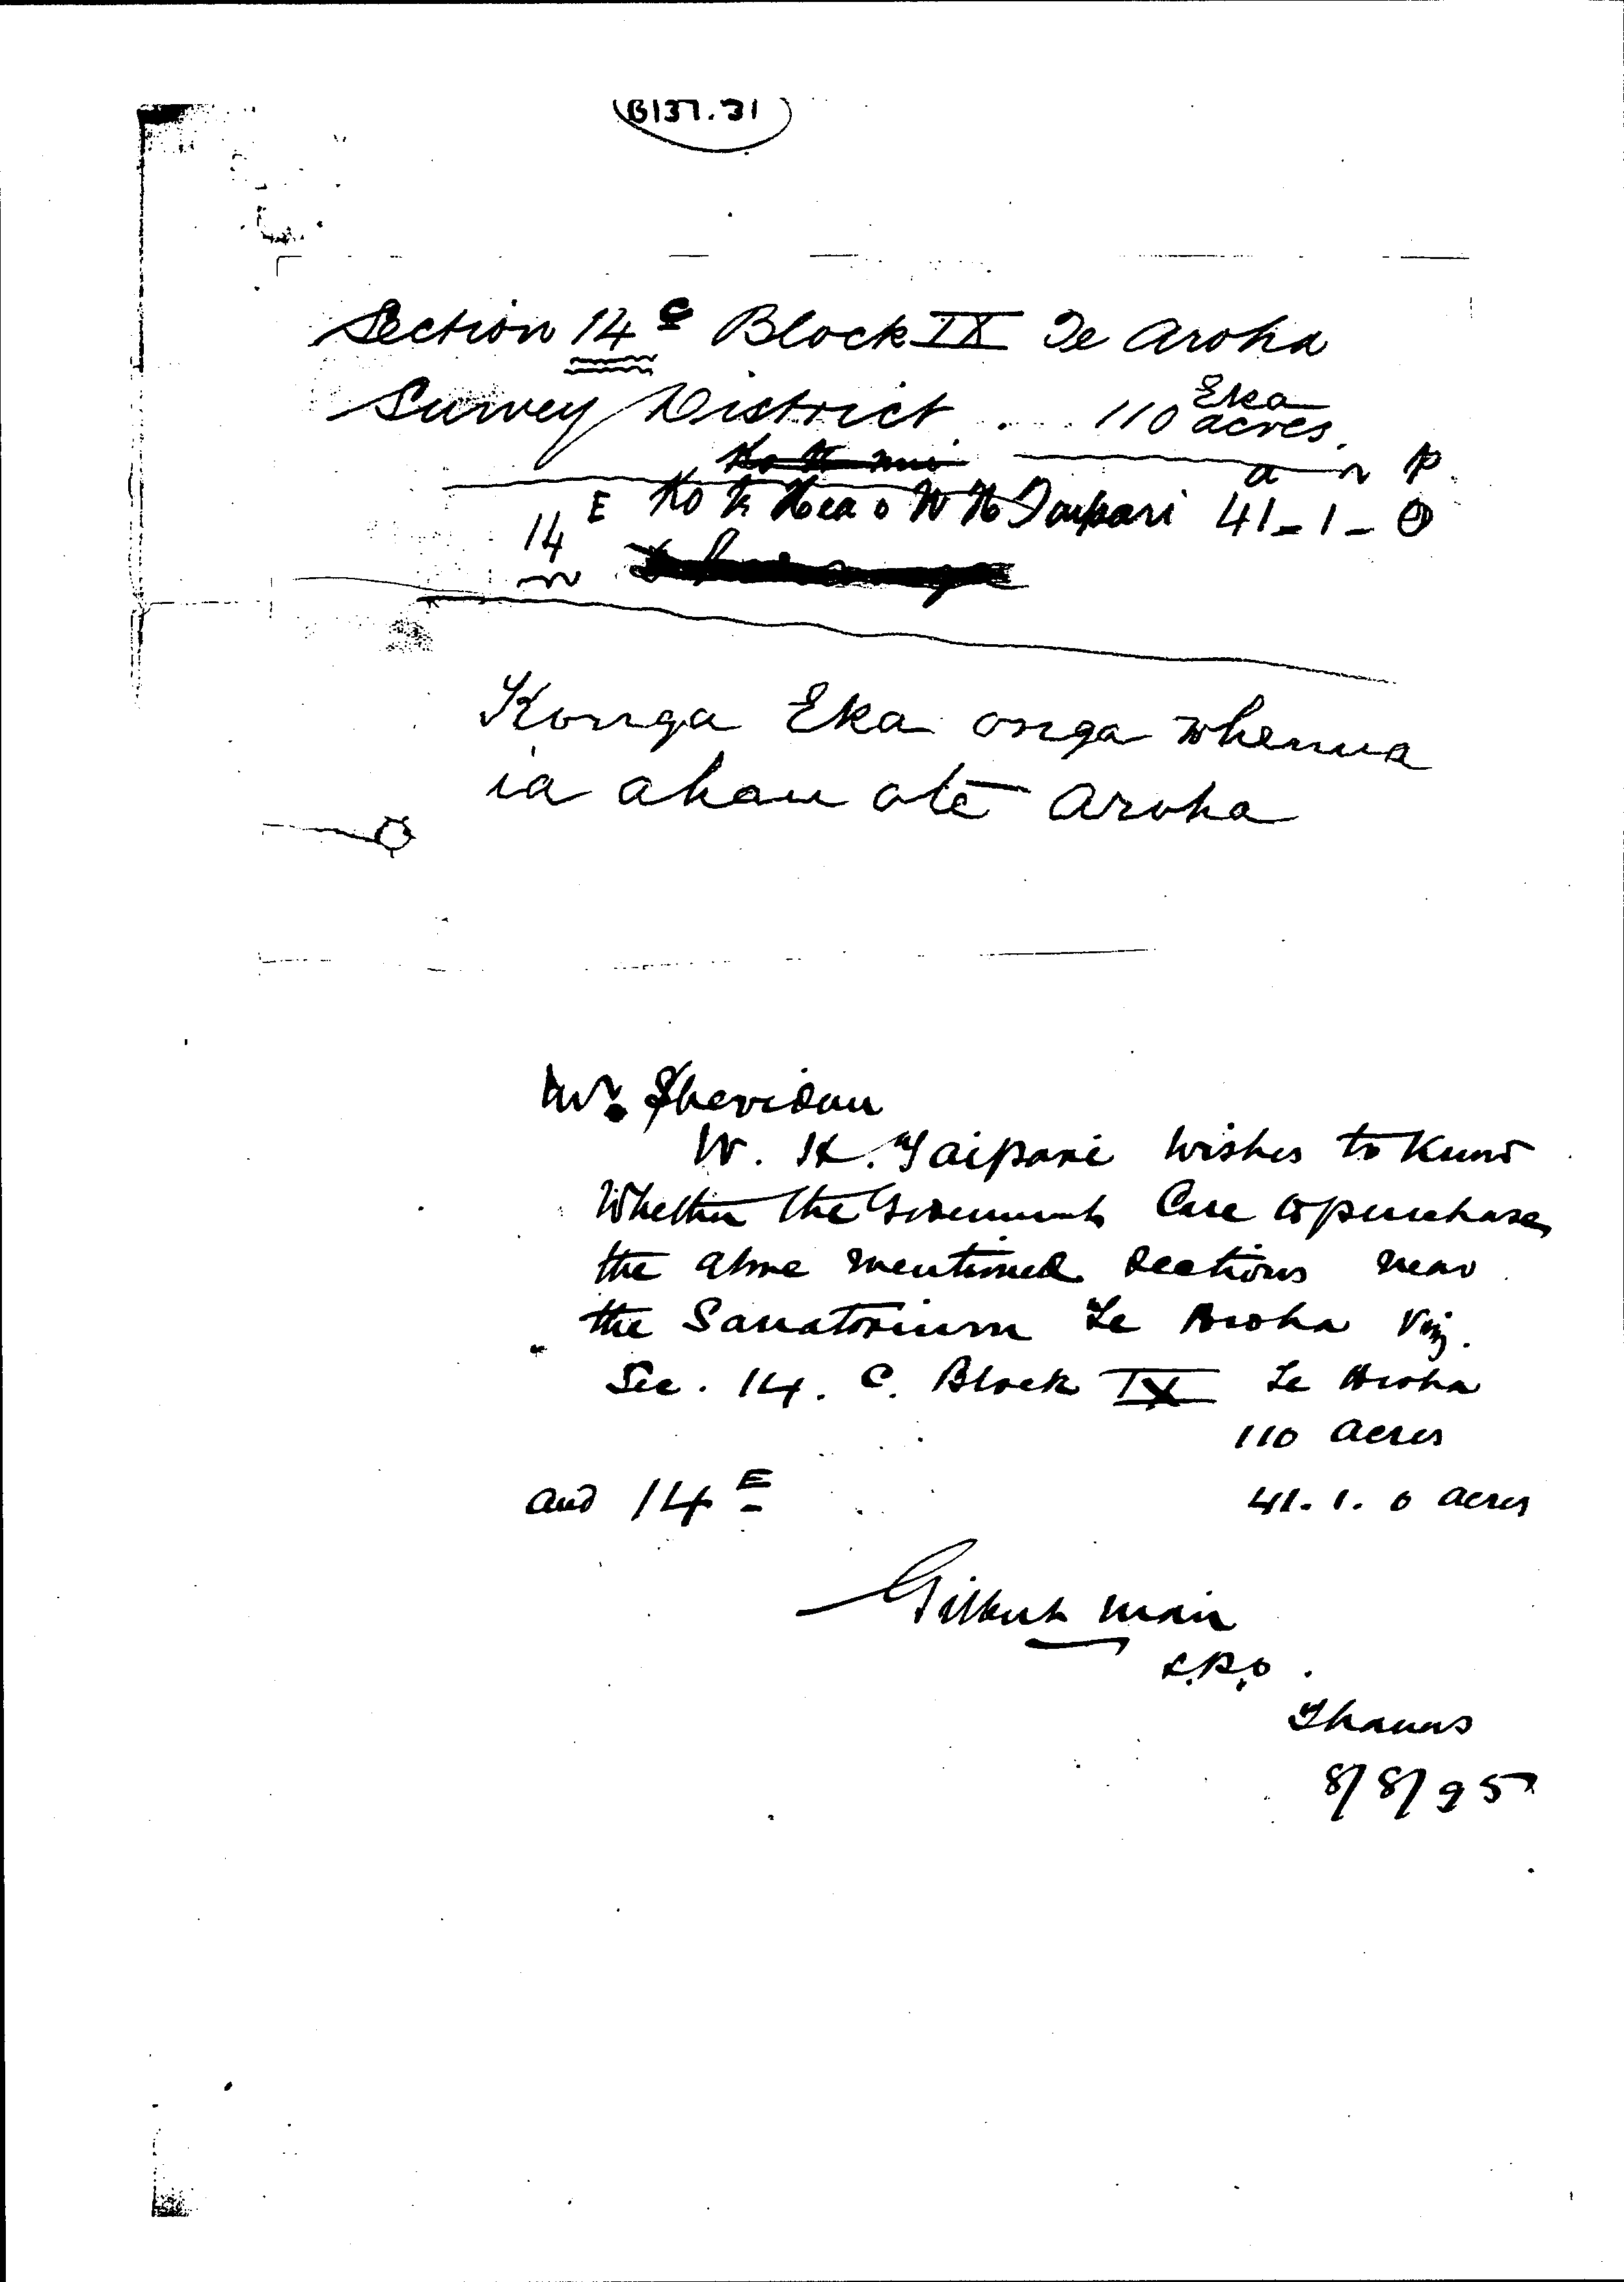 B137.31
Section 14 C Block IX Te Aroha
Survey District .... 110 Eka acres.
a r p
14 E Ko te Hea o W H Taipari 41-1-0
Konga Eka onga whenua
ia ahau ote Aroha
Mr. Sheridan
W. H. Taipari wishes to know
Whether the Government Care to purchase
the above mentioned sections near
the Sanatorium Te Aroha Viz.
Sec. 14. C. Block IX Te Aroha
110 acres
and 14 E 41. 1. 0 acres
Gilbert Mair
L.P.O.
Thames
8/8/95